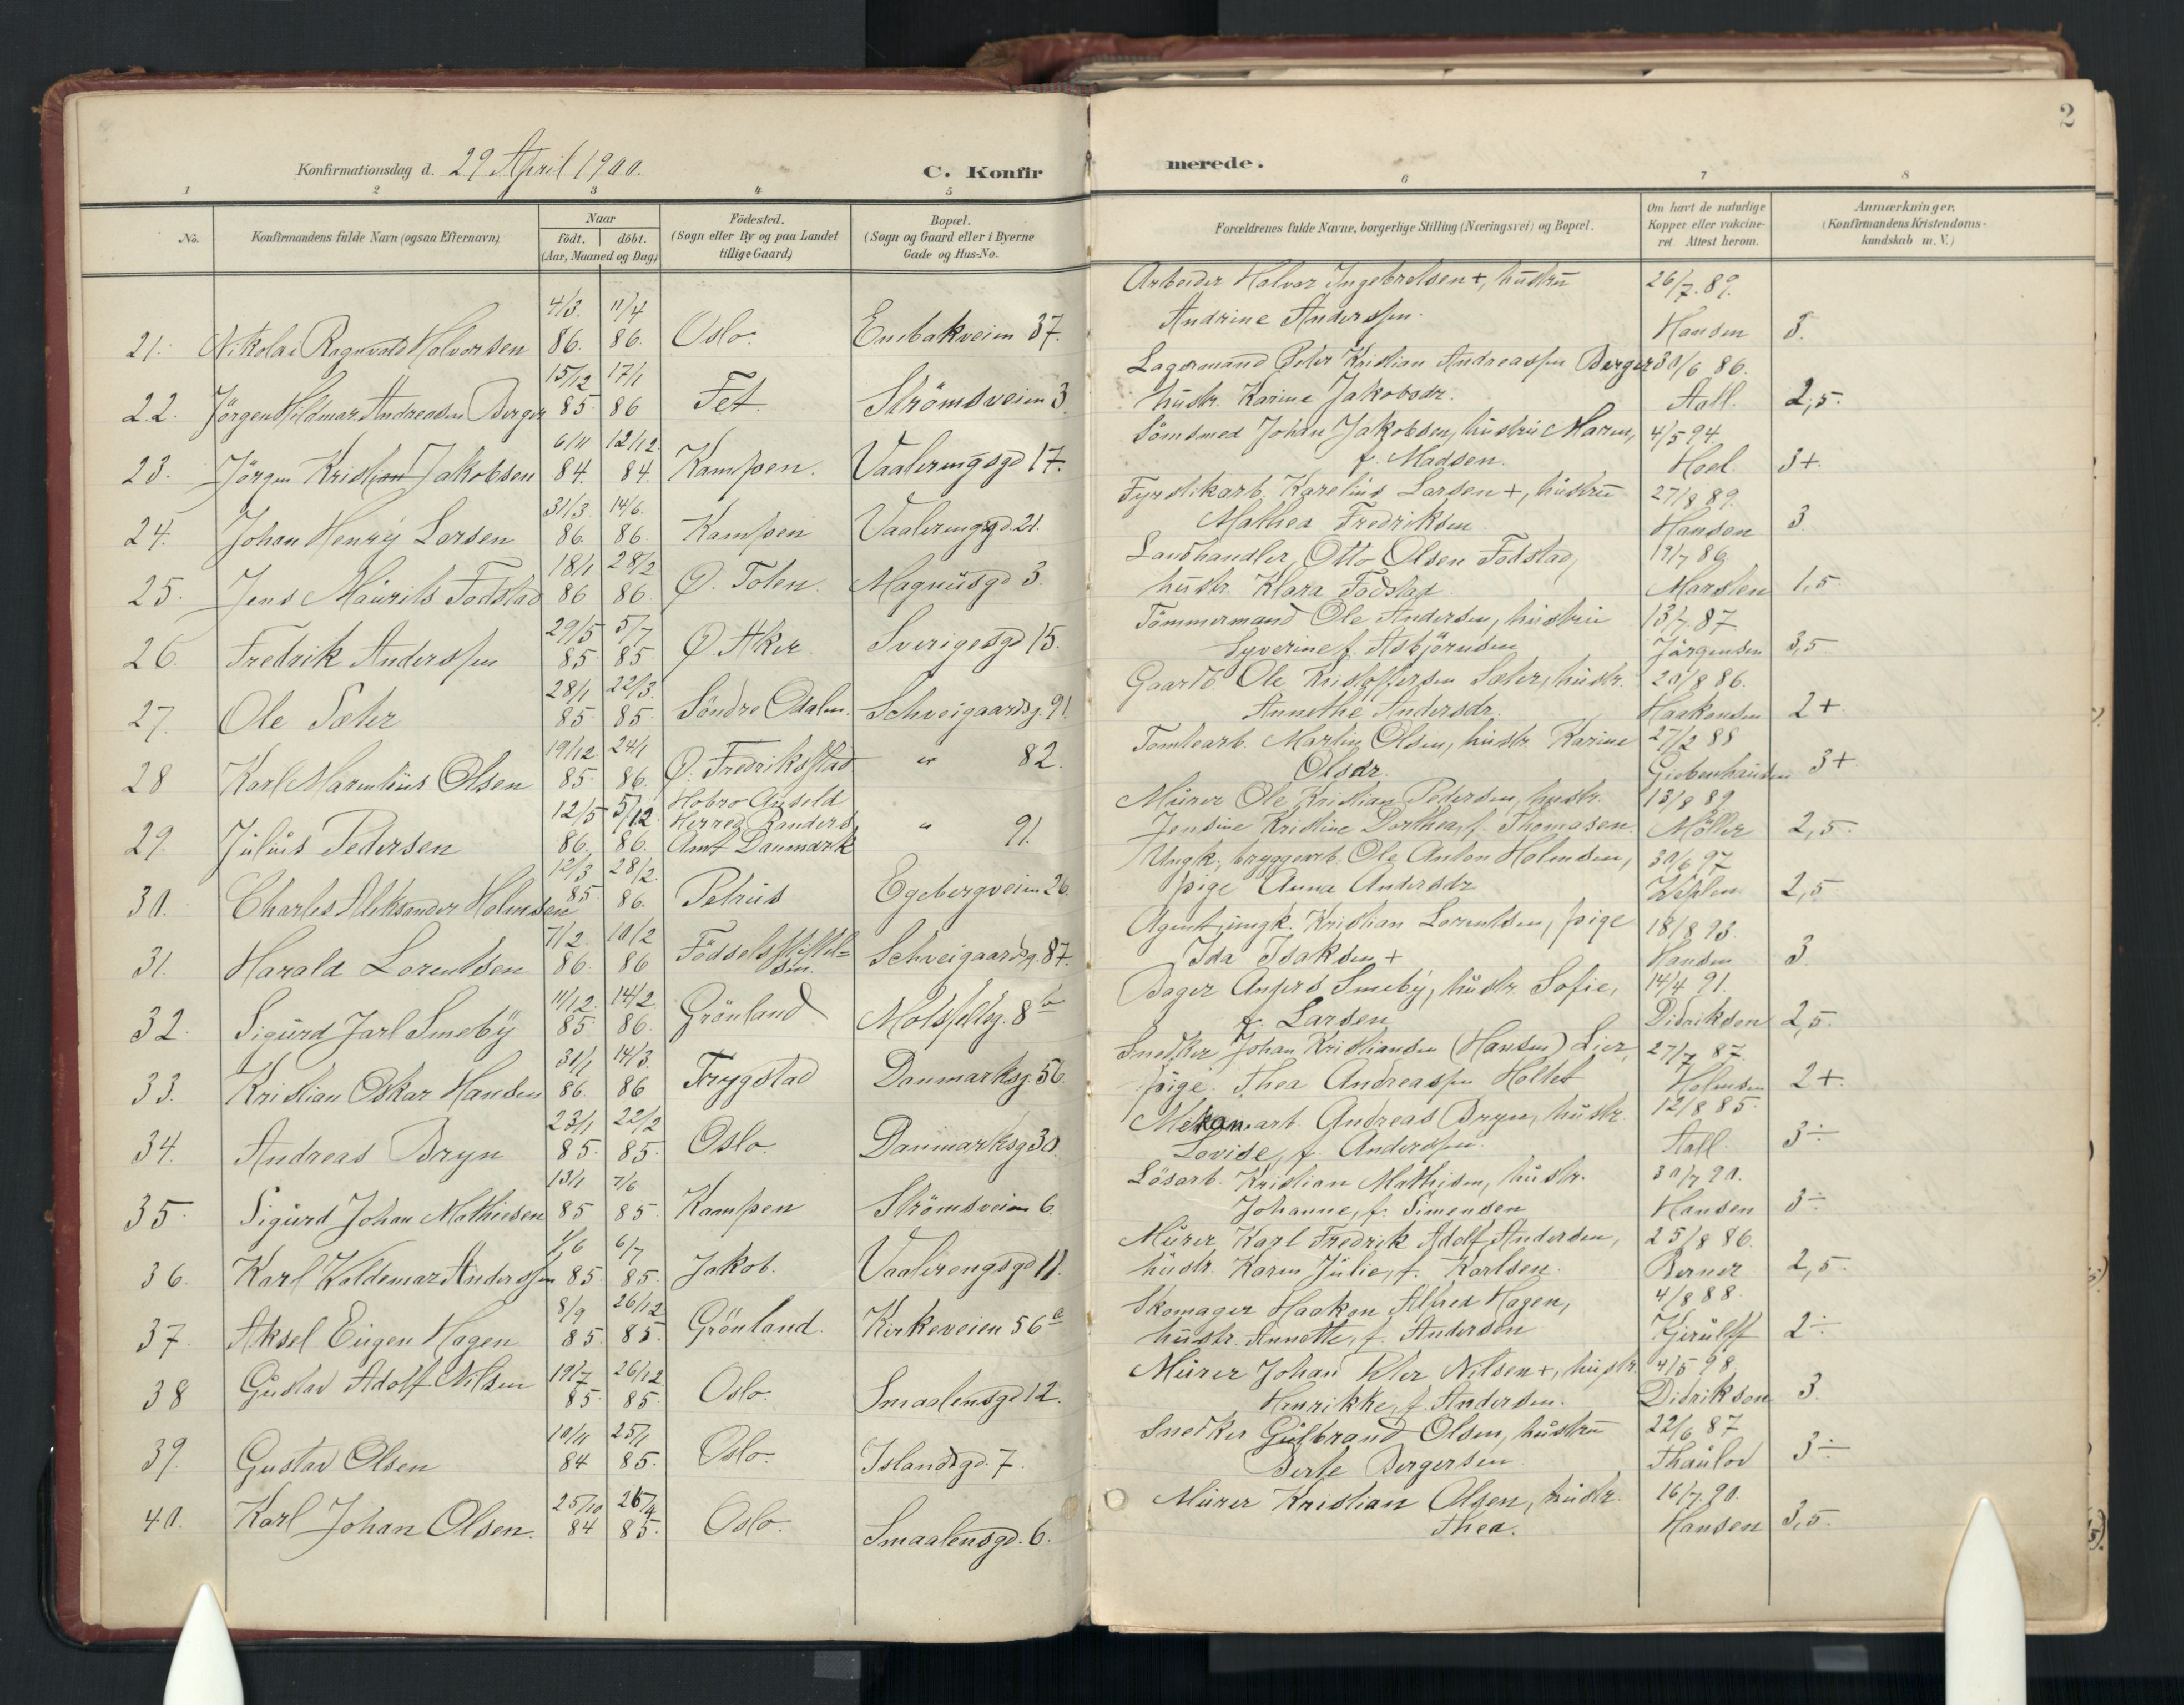 2
Konfirmationsdag d. 29 April 1900.
C. Konfirmerede.
1 2 3 4 5 6 7 8
No.
Konfirmandens fulde Navn (ogsaa Efternavn)
Naar
födt. döbt.
(Aar, Maaned og Dag)
Födested.
(Sogn eller By og paa Landet
tillige Gaard)
Bopæl.
(Sogn og Gaard eller i Byerne
Gade og Hus-No.
Forældrenes fulde Navne, borgerlige Stilling (Næringsvei) og Bopæl.
Om havt de naturlige
Kopper eller vakcine-
ret. Attest herom.
Anmærkninger.
(Konfirmandens Kristendoms-
kundskab m. V.)
4/3. 11/4 Arbeider Halvor Ingebretsen +, hustru 26/7. 89.
21. Nikolai Ragnvald Halvorsen 86. 86. Oslo. Enebakveien 37. Andrine Anderssen. Hansen 3.
15/12 17/1 Lagermand Peter Kristian Andreassen Berger 30/6 86.
22. Jörgen Hildmar Andreassen Berger 85. 86 Fet. Strömsveien 3. hustr. Karine Jakobsdr. Aall. 2,5.
6/11 12/12. Sömsmed Johan Jakobsen, hustru Maren, 4/5 94.
23. Jörgen Kristian Jakobsen 84. 84. Kampen. Vaalerengsgd 17. f. Madsen. Hoel. 3+.
31/3. 14/6. Fyrstikarb. Karelius Larsen +, hustru 27/8 89.
24. Johan Henry Larsen 86. 86. Kampen Vaalerengsgd. 21. Mathea Fredriksen Hansen 3.
18/1 28/2 Landhandler Otto Olsen Fodstad, 19/7 86.
25. Jens Maurits Fodstad 86 86. Ø. Toten. Magnusgd 3. hustr. Klara Fodstad. 1,5.
29/5 5/7 Tömmermand Ole Andersen, hustru 13/7. 87
26. Fredrik Anderssen 85. 85. Ø. Aker. Sverigesgd 15. Syverine f. Asbjörnsen Jörgensen 3,5.
28/1 22/3. Gaardb. Ole Kristoffersen Sæter, hustr. 20/8 86.
27. Ole Sæter 85. 85. Söndre Odalen. Schveigaardsg. 91. Annethe Andersdr. Haakensen 2+.
19/12 24/1 Tomtearb. Martin Olsen, hustr. Karine 27/2 88
28 Karl Marentius Olsen 85. 86. Ø. Fredrikstad " 82. Olsdr. Giebenhausen 3+.
12/5 5/12 Hobro Murer Ole Kristian Pedersen, hustr. 13/8 89.
29. Julius Pedersen 86. 86. Herred Randers Amt Danmark " 91. Jensine Kristine Dorthea, f. Thomasen. Möller 2,5.
12/3 28/2. Ungk., bryggearb. Ole Anton Holmsen, 30/6 97
30. Charles Aleksander Holmsen 85 86. Petrus Egebergveien 26. pige Anna Andersdr 2,5.
7/2. 10/2 Agent, ungk. Kristian Lorentsen, pige 18/8 93.
31. Harald Lorentsen 86. 86 Födselsstiftelsen. Schveigaardsg. 87. Ida Isaksen + Hansen 3.
11/12. 14/2. Bager Anders Smeby, hustr. Sofie, 14/4 91.
32. Sigurd Jarl Smeby 85. 86. Grönland Motzfeldsg. 8b f. Larsen Didriksen 2,5.
31/1 14/3. Snedker Johan Kristiansen (Hansen) Lier, 27/7 87.
33. Kristian Oskar Hansen 86. 86 Trygstad Danmarksg. 56. pige Thea Andreassen Holtet Holmsen 2+.
23/1 22/2 Mekan.arb. Andreas Bryn, hustr. 12/8 85.
34. Andreas Bryn 85. 85. Oslo. Danmarksg 30. Lovise, f. Anderssen. Aall. 3÷
13/1 7/6 Lösarb. Kristian Mathisen, hustr. 30/7 90.
35. Sigurd Johan Mathiesen 85 85. Kampen Strömsveien 6. Johanne, f. Simensen Hansen 3÷
1/6 6/7 Murer Karl Fredrik Adolf Andersen, 25/8 86.
36. Karl Valdemar Anderssen 85. 85. Jakob. Vaalerengsgd 11. hustr. Karen Julie, f. Karlsen. Berner 2,5.
8/9 26/12 Skomager Haakon Alfred Hagen, 4/8 88.
37. Aksel Eugen Hagen 85. 85. Grönland. Kirkeveien 56a hustr. Annette, f. Andersen Kjerulff 2÷
19/7 26/12 Murer Johan Peter Nilsen +, hustr. 4/5 98.
38 Gustav Adolf Nilsen 85. 85. Oslo. Smaalensgd 12. Henrikke, f. Andersen. Didriksen 3.
10/11 25/1 Snedker Gulbrand Olsen, hustru 22/6 87
39. Gustav Olsen 84 85. Oslo. Islandsgd. 7. Berte Bergersen Thaulow 3÷
25/10 26/4 Murer Kristian Olsen, hustr. 16/7. 90.
40. Karl Johan Olsen. 84 85. Oslo. Smaalensgd. 6. Thea. Hansen 3,5.